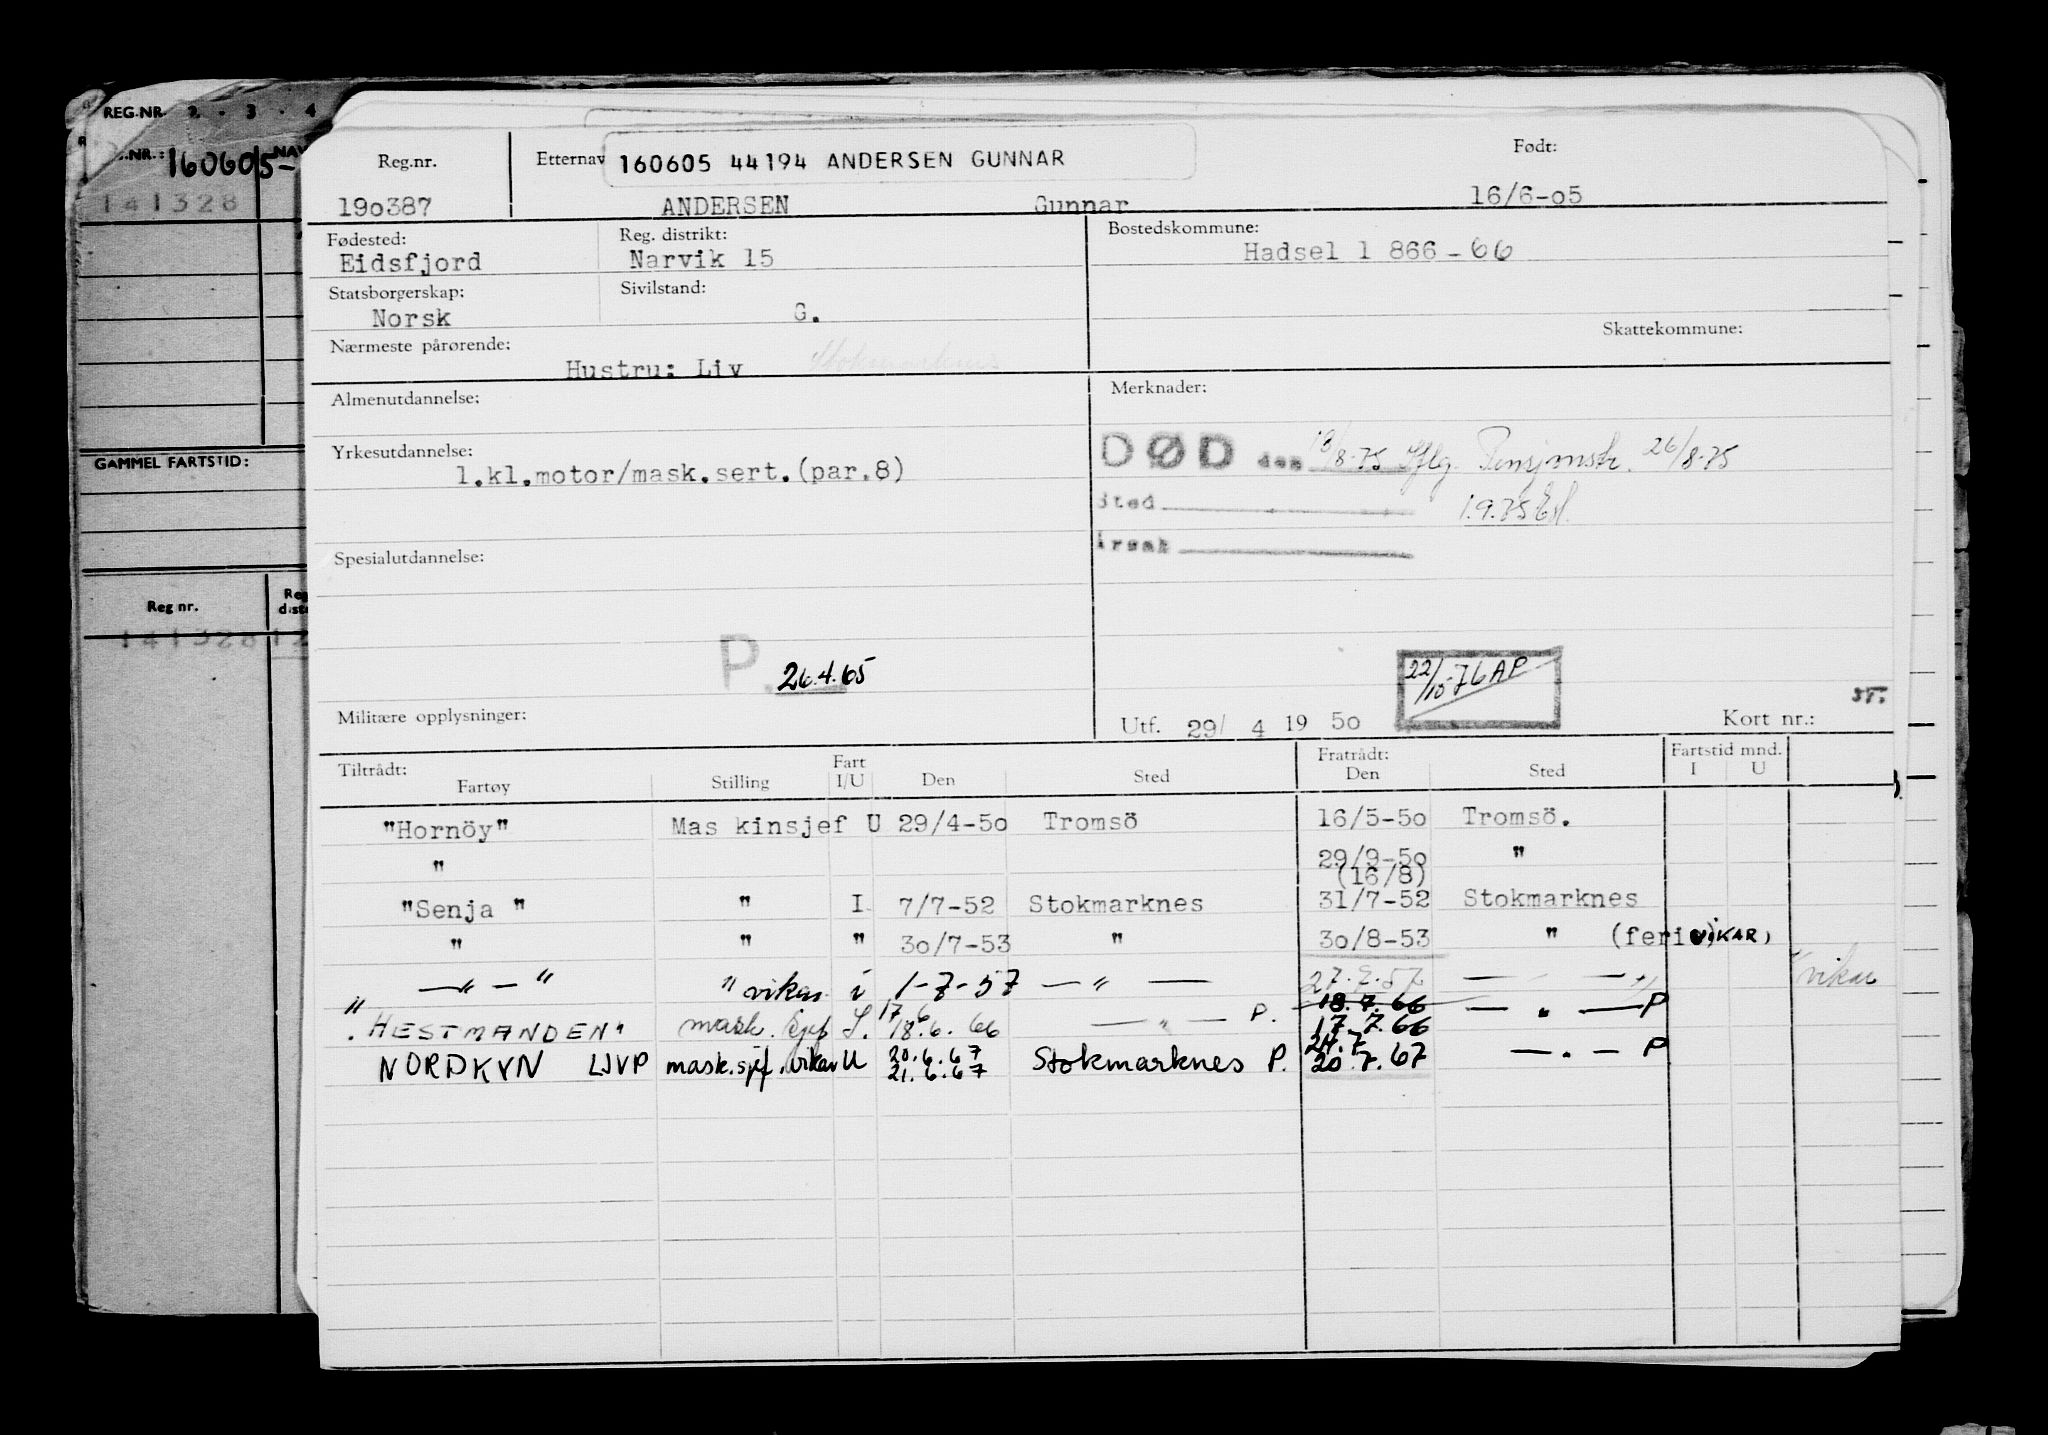 REG.NR. 2 . 3 . 4
.NR.: 160605- NAV
141328
GAMMEL FARTSTID:
Reg nr. Reg dist
141328 12
Reg.nr. Etternav 160605 44194 ANDERSEN GUNNAR Født:
19o387 ANDERSEN Gunnar 16/6-o5
Fødested: Reg. distrikt: Bostedskommune:
Eidsfjord Narvik 15 Hadsel 1 866 - 66
Statsborgerskap: Sivilstand:
Norsk G.
Skattekommune:
Nærmeste pårørende:
Hustru: Liv Stokmarknes
Almenutdannelse: Merknader:
Yrkesutdannelse: DØD den 18/8-75 Iflg. Pensjonstr. 26/8-75
1.kl.motor/mask.sert.(par.8)
Sted 1.9.75
Årsak
Spesialutdannelse:
P. 26.4.65
22/10-76 AP
Militære opplysninger: Utf. 29/ 4 19 5o Kort nr.:
Tiltrådt: Fart Fratrådt: Fartstid mnd.
Fartøy Stilling I/U Den Sted Den Sted I U
"Hornöy" Mas kinsjef U 29/4-5o Tromsö 16/5-5o Tromsö.
" 29/9-5o "
(16/8)
"Senja " " I 7/7-52 Stokmarknes 31/7-52 Stokmarknes
" " " 3o/7-53 " 3o/8-53 " (ferievikar)
— " — " " vikar i 1-7-57 — " — 27.7.57 — " — " vikar
18.7.66
"HESTMANDEN" mask. sjef I. 17 6 18.6.66 — " — P. 17.7.66 — " — P
24.7
NORDKYN LJVP mask.sjef.vikar U 20.6.67 Stokmarknes P. 20.7.67 — " — P
21.6.67